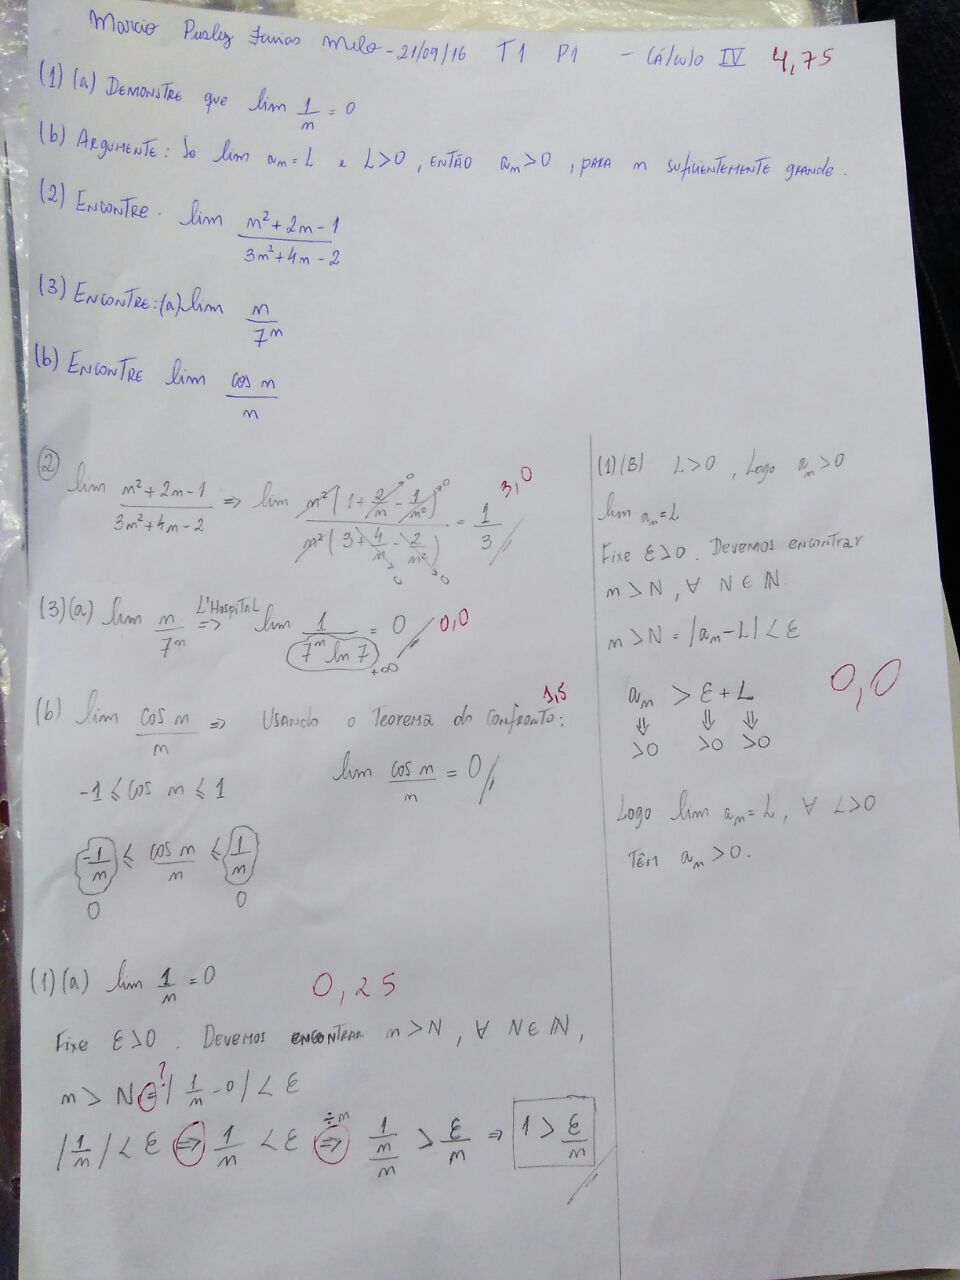 Marcio Pusley Farias Melo - 21/09/16 T1 P1 - Cálculo IV 4,75
(1) (a) DEMONSTRE que lim 1/n = 0
(b) ARGUMENTE: Se lim an = L e L>0, ENTÃO an>0, PARA n SUFICIENTEMENTE grande.
(2) ENCONTRE. lim (n²+2n-1)/(3n²+4n-2)
(3) ENCONTRE: (a) lim n/7ⁿ
(b) ENCONTRE lim cos n/n
② lim (n²+2n-1)/(3n²+4n-2) => lim n²(1+2/n-1/n²)/n²(3+4/n-2/n²) = 1/3 3,0
0 0
0 0
(3)(a) lim n/7ⁿ L'HospiTAL => lim 1/(7ⁿ ln 7) = 0 0,0
+∞
(b) lim cos n/n => Usando o Teorema do Confronto: 1,5
-1 ≤ cos n ≤ 1 lim cos n/n = 0
-1/n ≤ cos n/n ≤ 1/n
0 0
(1)(a) lim 1/n = 0 0,25
Fixe ε>0. Devemos encontrar n>N, ∀ N∈ℕ,
n > N = |1/n - 0| < ε ?
|1/n| < ε => 1/n < ε ÷n => (1/n)/n > ε/n => 1 > ε/n
(1)(B) L>0, Logo an>0
lim an=L
Fixe ε>0. Devemos encontrar
n>N, ∀ N∈ℕ.
n>N = |an-L|<ε
an > ε+L 0,0
⇓ ⇓ ⇓
>0 >0 >0
Logo lim an=L, ∀ L>0
Têm an>0.